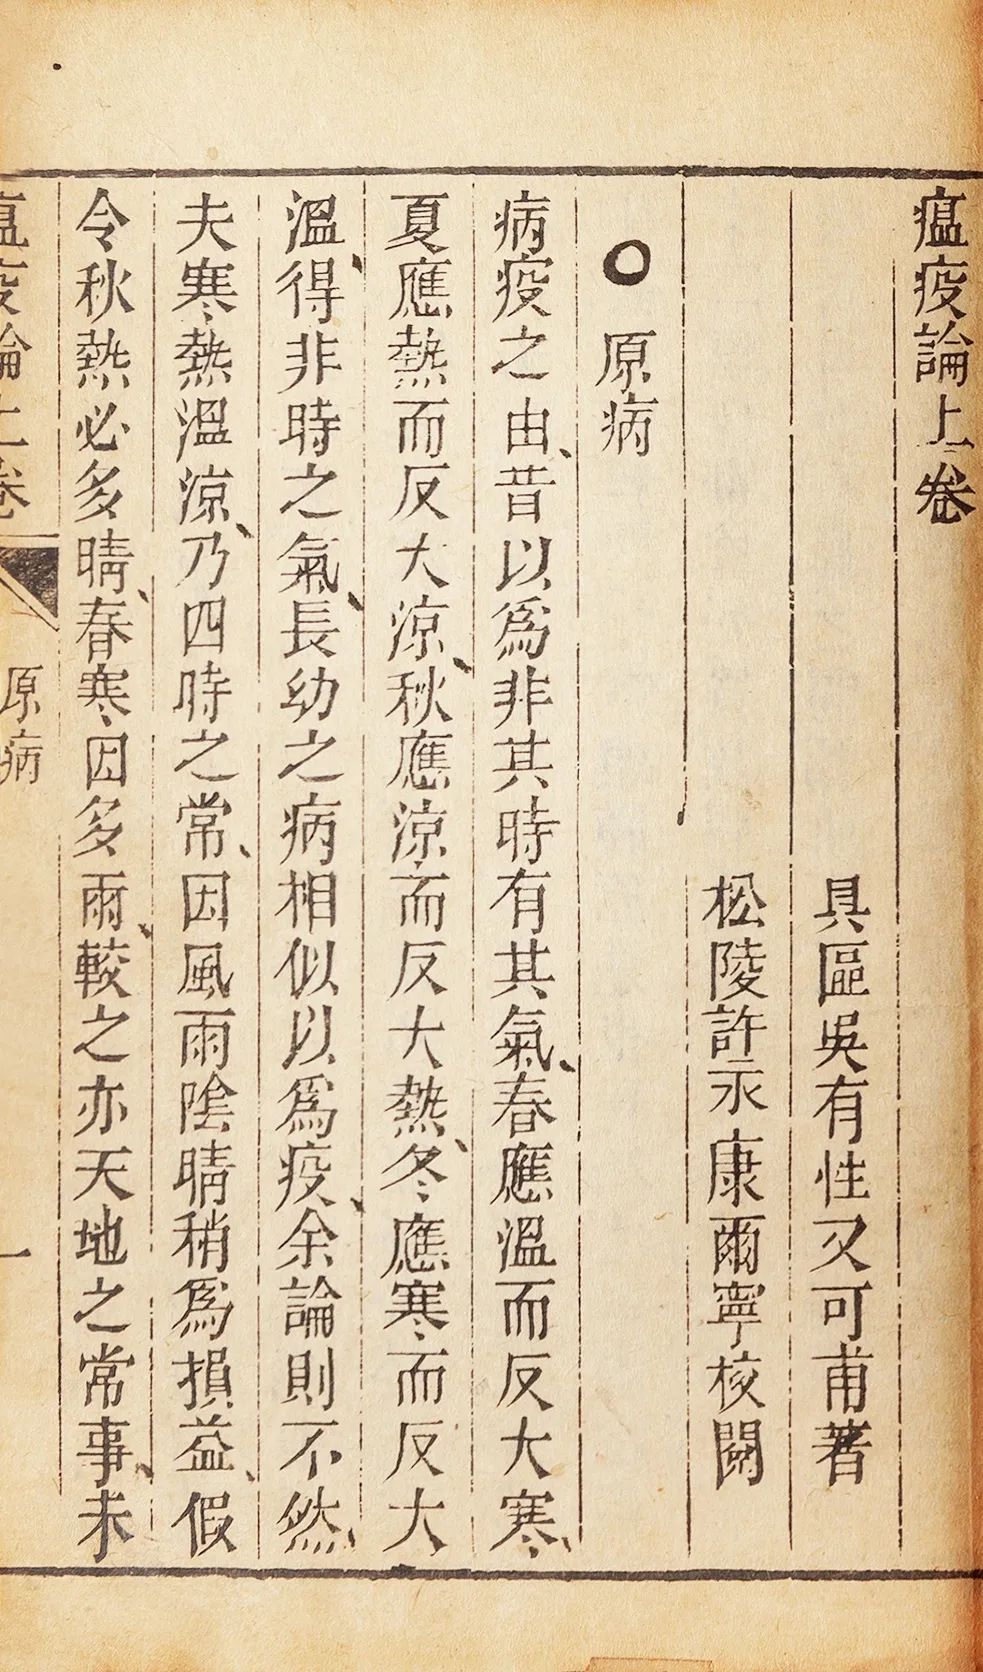 瘟疫論上卷
具區吳有性又可甫著
松陵許永康爾寧核閱
○原病
病疫之由、昔以爲非其時有其氣、春應溫而反大寒、
夏應熱而反大涼、秋應涼而反大熱、冬應寒而反大
溫、得非時之氣、長幼之病相似以爲疫、余論則不然、
夫寒熱溫涼、乃四時之常、因風雨陰晴稍爲損益、假
令秋熱必多晴、春寒因多雨、較之亦天地之常事、未
瘟疫論上卷 原病 一